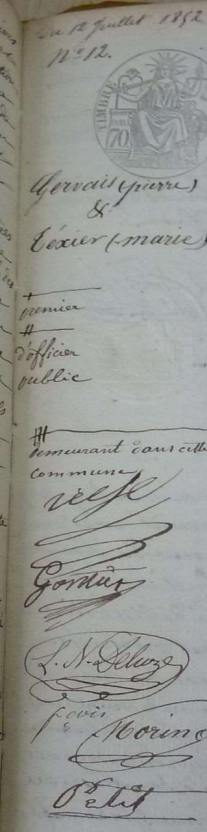 Du 12 Juillet 1852
N° 12.
TIMBRE
70
Gervais (pierre)
&
Téxier (marie)
+
premier
#
d'officier
public
##
demeurant dans cette
commune
L. N. Deluze
Morin
Petit